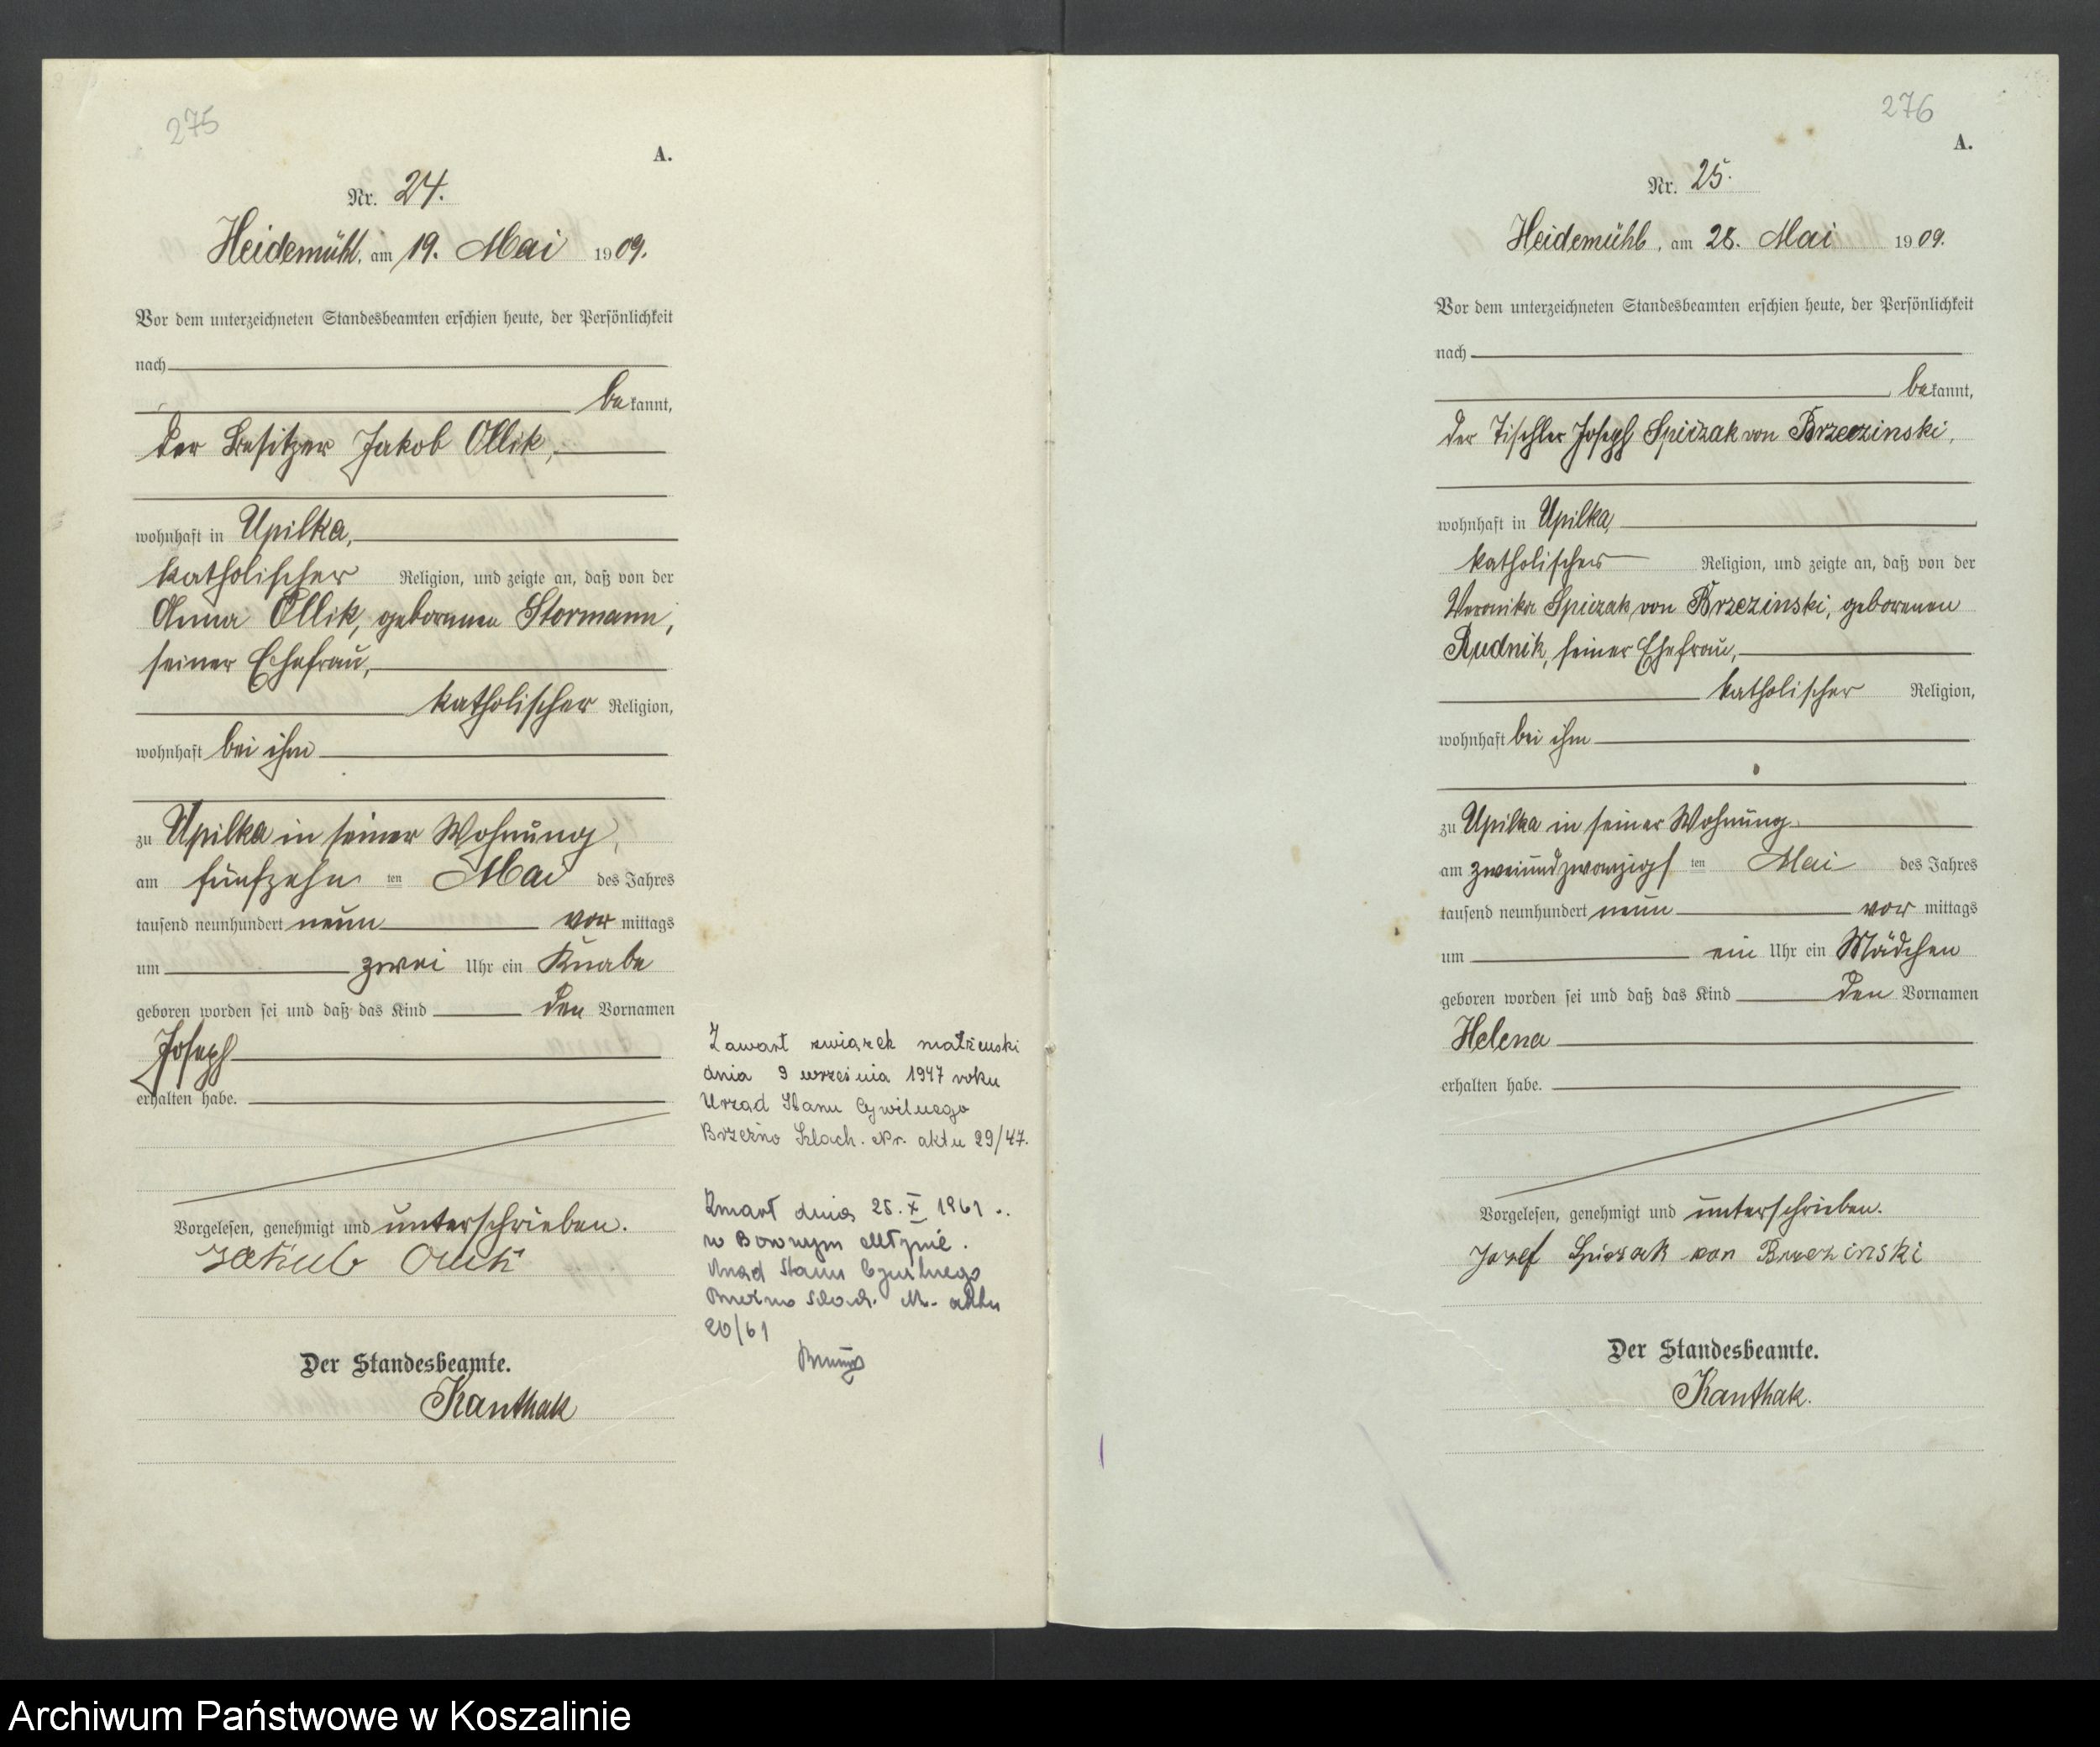 275
A.
Nr. 24.
Heidemühl, am 19. Mai 1909.
Vor dem unterzeichneten Standesbeamten erschien heute, der Persönlichkeit
nach
bekannt,
der Besitzer Jakob Ollik,
wohnhaft in Upilka,
katholischer Religion, und zeigte an, daß von der
Anna Ollik, geborenen Stormann,
seiner Ehefrau,
katholischer Religion,
wohnhaft bei ihm
zu Upilka in seiner Wohnung,
am fünfzehn ten Mai des Jahres
tausend neunhundert neun vor mittags
um zwei Uhr ein Knabe
geboren worden sei und daß das Kind den Vornamen
Joseph
erhalten habe.
Vorgelesen, genehmigt und unterschrieben.
Jakub
Der Standesbeamte.
Kanthak
Zawarł związek małżeński
dnia 9 września 1947 roku
Urząd Stanu Cywilnego
Brzeźno Szlach. Nr. aktu 29/47.
Zmarł dnia 25. X 1961
w Borowym Młynie.
Urząd Stanu Cywilnego
Brzeźno Szlach. Nr. aktu
20/61
276
A.
Nr. 25.
Heidemühl, am 28. Mai 1909.
Vor dem unterzeichneten Standesbeamten erschien heute, der Persönlichkeit
nach
bekannt,
der Tischler Joseph Spiczak von Brzezinski,
wohnhaft in Upilka,
katholischer Religion, und zeigte an, daß von der
Veronika Spiczak von Brzezinski, geborenen
Rudnik, seiner Ehefrau,
katholischer Religion,
wohnhaft bei ihm
zu Upilka in seiner Wohnung
am zweiundzwanzigs ten Mai des Jahres
tausend neunhundert neun vor mittags
um ein Uhr ein Mädchen
geboren worden sei und daß das Kind den Vornamen
Helena
erhalten habe.
Vorgelesen, genehmigt und unterschrieben.
Jozef Spiczak von Brzezinski
Der Standesbeamte.
Kanthak.
Archiwum Państwowe w Koszalinie